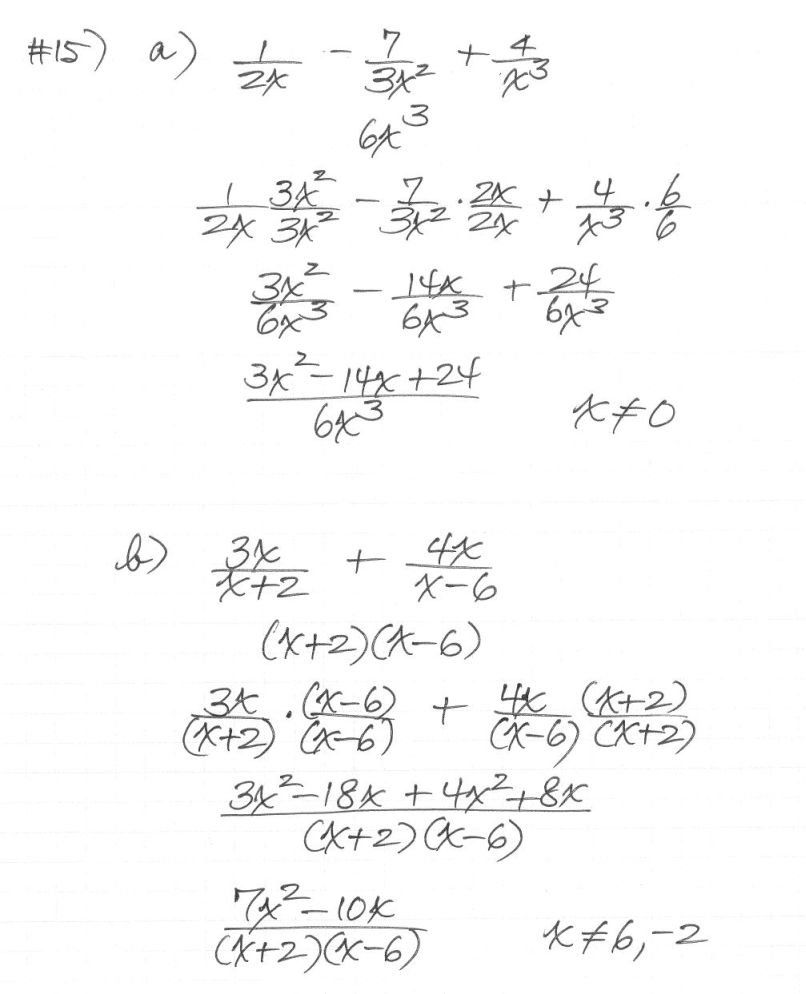 #15) a) 1/2x - 7/3x² + 4/x³
6x³
1/2x 3x²/3x² - 7/3x² · 2x/2x + 4/x³ · 6/6
3x²/6x³ - 14x/6x³ + 24/6x³
3x²-14x+24/6x³ x≠0
b) 3x/x+2 + 4x/x-6
(x+2)(x-6)
3x/(x+2) · (x-6)/(x-6) + 4x/(x-6) (x+2)/(x+2)
3x²-18x+4x²+8x/(x+2)(x-6)
7x²-10x/(x+2)(x-6) x≠6,-2